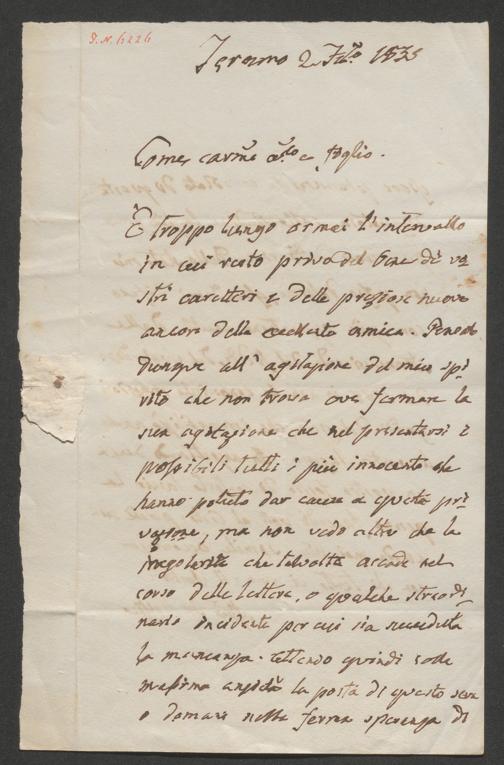 Teramo 2 1835
Comp carmo e foglio.
È troppo lungo ormai l'intervallo
in cui resto privo del bene di vo-
stri caratteri e delle preziose nuove
ancora della eccellente amica.
dunque all' agitazione del mio spi-
rito che non trova ove fermare la
sua agitazione che nel presentarsi i
possibili tutti i più innocenti che
hanno potuto dar causa a questa pri-
vazione, ma non vedo altro che la
irregolarità che talvolta accade nel
corso delle lettere, o qualche straordi-
nario incidente per cui sia succeduta
la mancanza. Attendo quindi colla
massima ansietà la posta di questa sera
o domani nella ferma speranza di